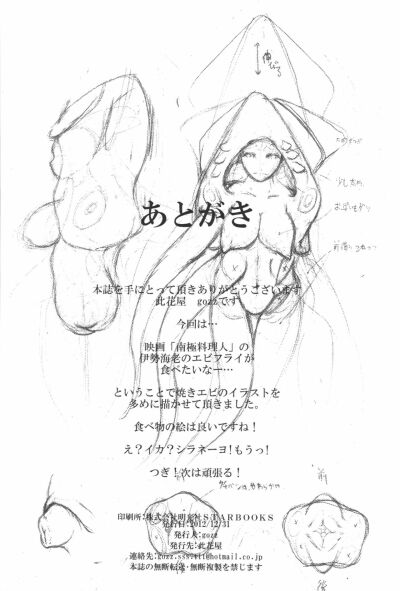 伸びる
あとがき
本誌を手にとって頂きありがとうございます
此花屋 gozzです
今回は…
映画「南極料理人」の
伊勢海老のエビフライが
食べたいなー…
ということで焼きエビのイラストを
多めに描かせて頂きました。
食べ物の絵は良いですね!
え?イカ?シラネーヨ!もうっ!
つぎ!次は頑張る!
前
印刷所:株式会社明光社STARBOOKS
発行日:2012/12/31
発行人:gozz
発行先:此花屋
本誌の無断転送・無断複製を禁じます
後